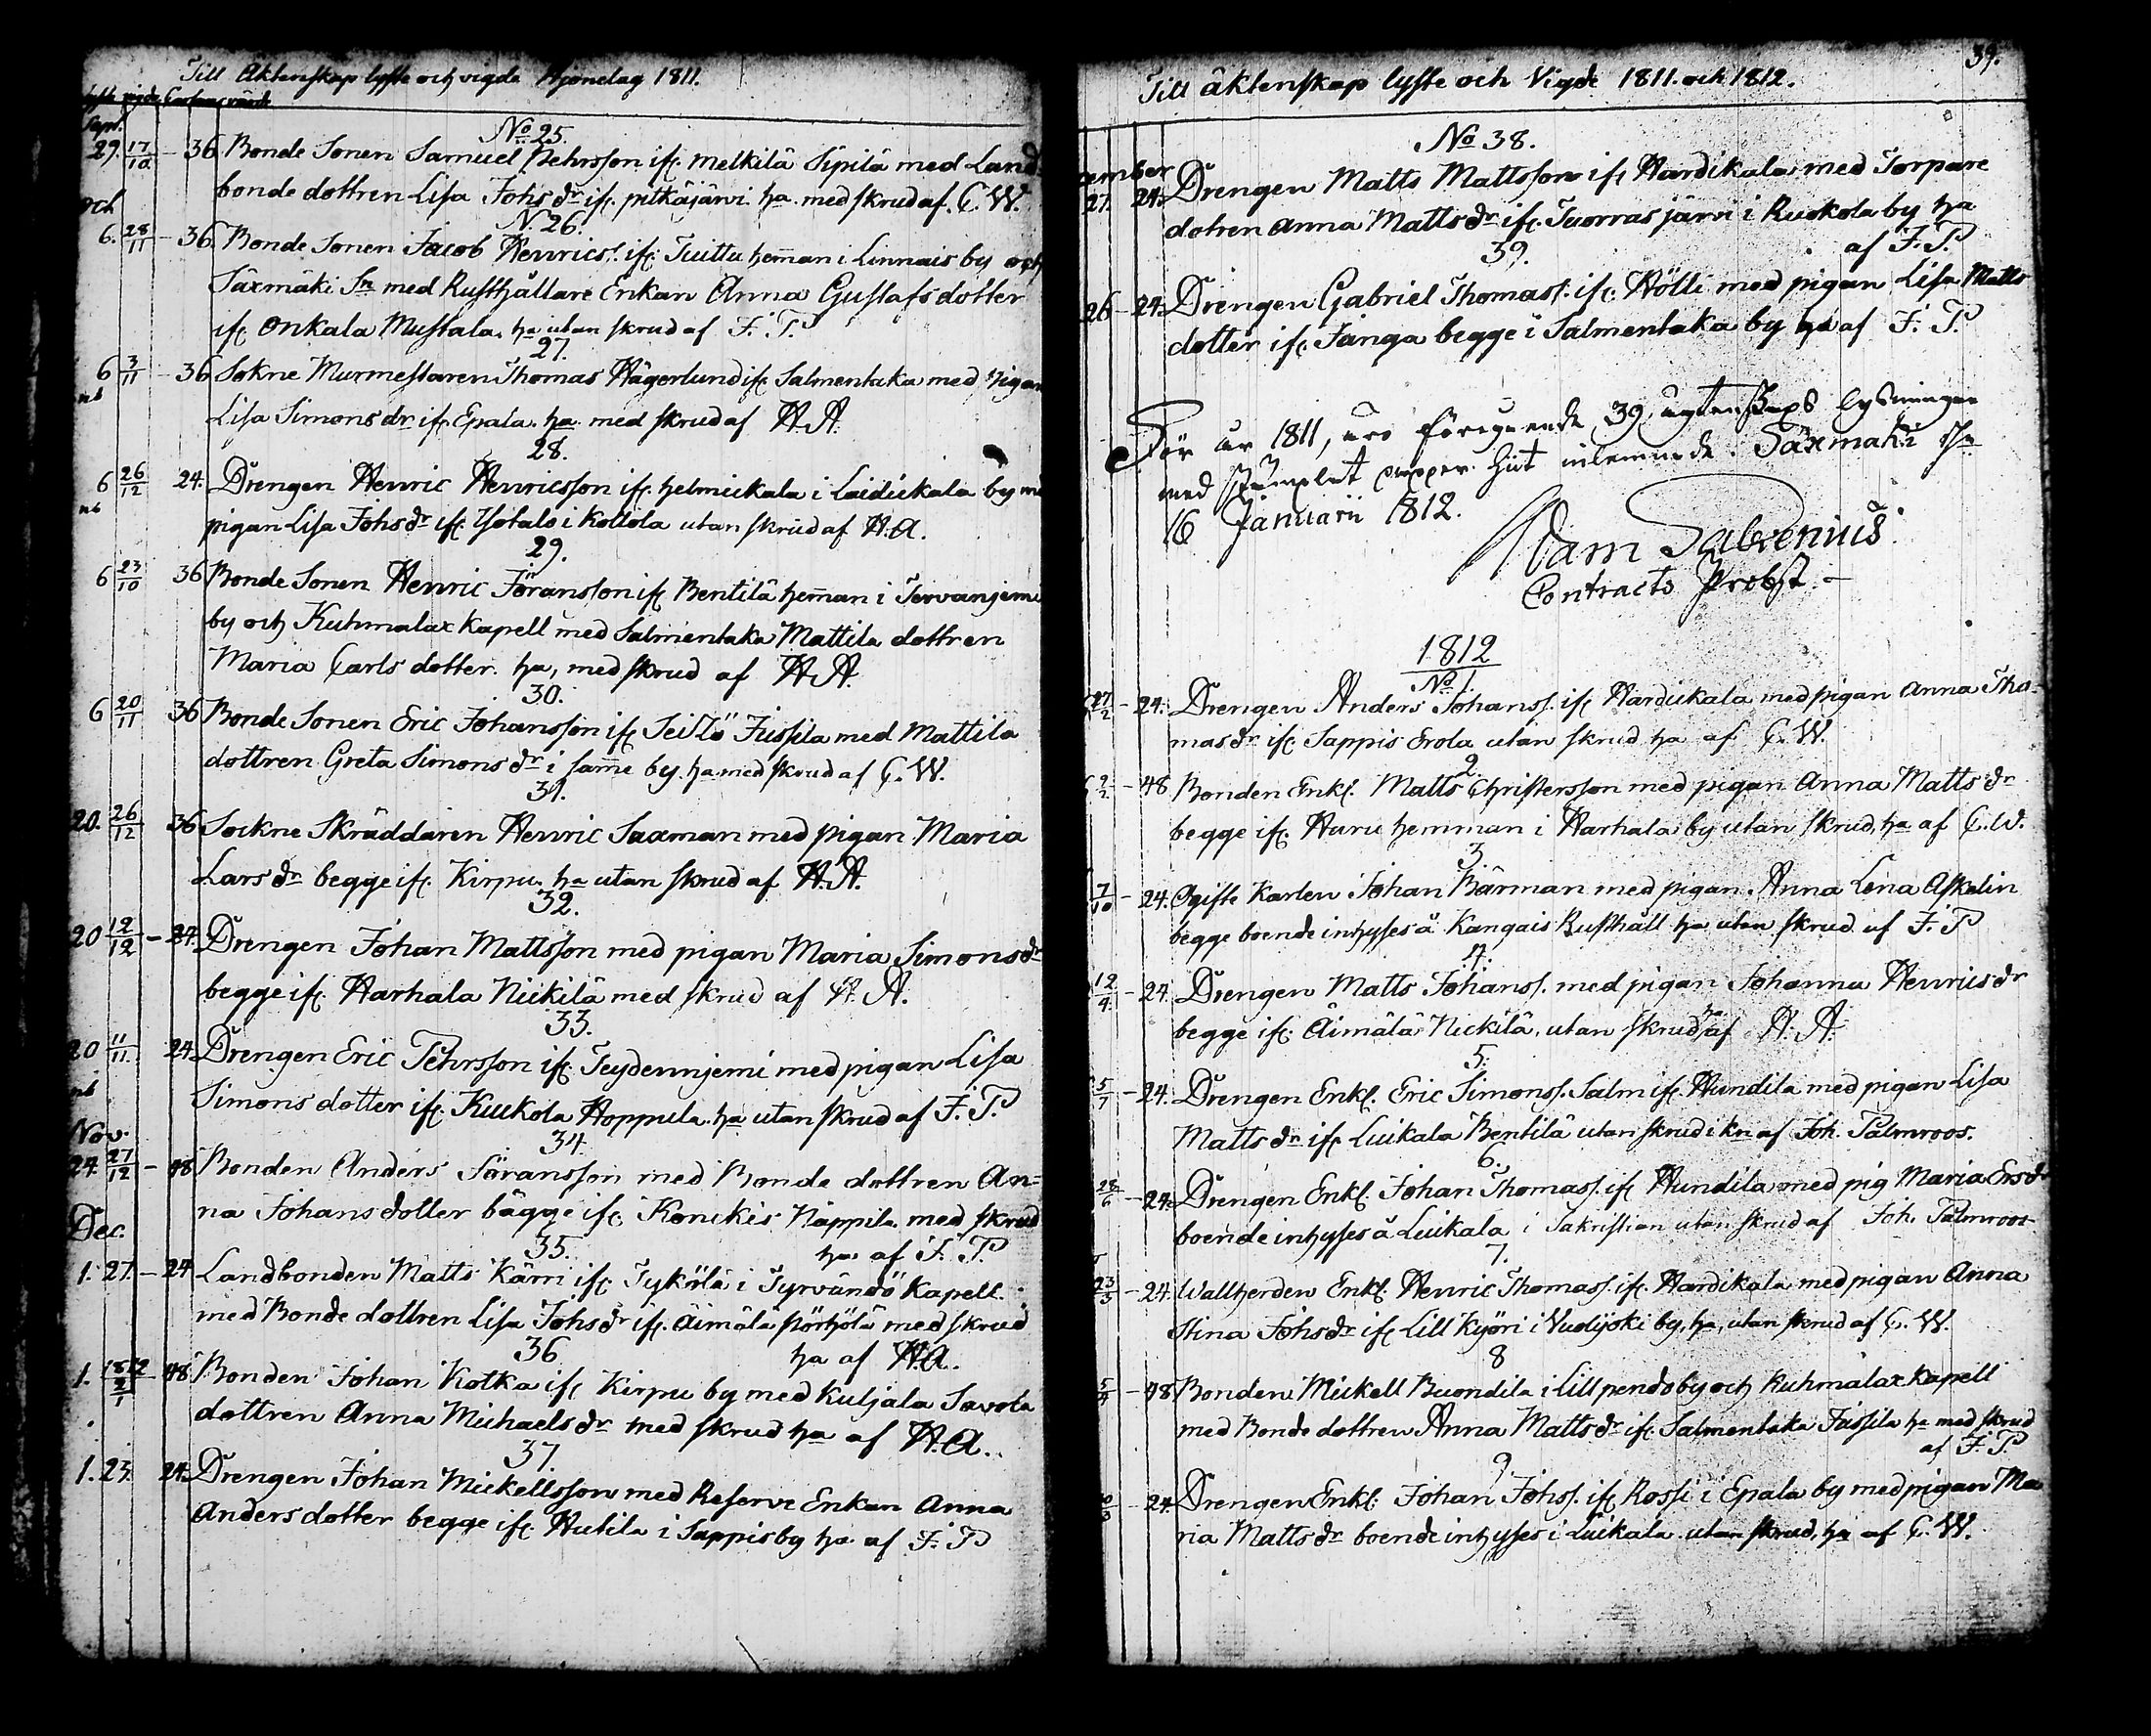 Till Äktenskap lyste och vigda Hjonelag 1811.
lyste vigde
Sept.
No 25.
29. 17/10 - 36 Bonde Sonen Samuel Pehrsson ifr. Melkilä Sipilä med Land-
bonde dottren Lisa Johs dr ifr. pitkäjärvi. ha med skrud af. C. W.
Och
N. 26.
6. 28/11 - 36. Bonde Sonen Jacob Henrics. ifr. Tuittu hemman i Linnais by och
Säxmäki Sn med Rusthållare Enkan Anna Gustafs dotter
ifr Onkala Mustala. ha utan skrud af F. P.
27.
6 3/11 - 36 Sokne Murmestaren Thomas Hägerlund ifr Salmentaka med pigan
Lisa Simons dr ifr Epala, ha. med skrud af H. A.
28.
6 26/12 24. Drengen Henric Henricsson ifr. helmickala i Laidickala by
pigan Lisa Johs dr ifr. Isotalo i Kottola utan skrud af H. A.
29.
6 23/10 36 Bonde Sonen Henric Göransson ifr Bentilä hemman i Tervanjemi
by och Kuhmalax Kapell med Salmentaka Mattila dottren
Maria Carls dotter. ha, med skrud af H. A.
30.
6 20/11 36 Bonde Sonen Eric Johansson ifr Seitzö Jussila med Mattila
dottren Greta Simons dr i samme by. ha med skrud af C. W.
31.
20. 26/12 36 Sockne Skräddaren Henric Saxman med pigan Maria
Lars dr begge ifr. Kirpu. ha utan skrud af H. A.
32.
20 12/12 - 24. Drengen Johan Mattsson med pigan Maria Simons dr
begge ifr. Harhala Nickilä med skrud af H. A.
33.
20 11/11. 24. Drengen Eric Pehrsson ifr Teydennjemi med pigan Lisa
Simons dotter ifr. Kuckola Hoppula. ha utan skrud af F. P.
Nov.
34.
24. 27/12 - 48 Bonden Anders Göransson med Bonde dottren An=
na Johans dotter bägge ifr. Konckis Näppila med skrud
ha af F. P.
Dec.
35.
1. 27. - 24 Landbonden Matts Kärri ifr Tykölä i Tyrvändö Kapell
med Bonde dottren Lisa Johs dr ifr. Äimälä störhölä med skrud
ha af H. A.
36
1. 1812 2/1 48 Bonden Johan Kotka ifr Kirpu by med Kuljala Savola
dottren Anna Michaels dr med skrud ha af H. A.
37.
1. 23. 24. Drengen Johan Mickellsson med Reserve Enkan Anna
Anders dotter begge ifr. Hutila i Sappis by ha af F. P.
39.
Till äktenskap lyste och Vigde 1811. och 1812.
No 38.
cember
27. 24. Drengen Matts Mattsson ifr Hardikala med Torpare
dotren Anna Matts dr ifr. Tuorras järvi i Ruokola by ha
af F. P.
39.
26 - 24. Drengen Gabriel Thomass. ifr. Hölli med pigan Lisa Matts
dotter ifr. Janga begge i Salmentaka by ha af F. P.
För år 1811, äro föregående 39 ägtenskaps lysningar
med stämplat papper hit inlemnade. Säxmäki
16 Januarii 1812.
Adam Salvenius
Contracts Probst. -
1812
No 1
27/2 - 24. Drengen Anders Johanss. ifr Hardickala med pigan Anna Tho-
mas dr ifr. Sappis Erola utan skrud ha af C. W.
2.
2/2 - 48 Bonden Enkl. Matts Christersson med pigan Anna Matts dr
begge ifr. Haru hemman i Harhala by utan skrud, ha af C. W.
3.
7/10 - 24. Ogifte Karlen Johan Bärman med pigan Anna Lena Askelin
begge boende inhyses å Kangais Rusthåll ha utan skrud af F. P
4.
12/4. - 24 Drengen Matts Johanss. med pigan Johanna Henrics dr
begge ifr. Äimälä Nickilä, utan skrud ha af H. A.
5.
5/7 - 24. Drengen Enkl. Eric Simonss. Salm ifr. Hundila med pigan Lisa
Matts dr ifr. Luikala Bentilä utan skrud i kn af Joh. Palmroos.
6.
28/6 - 24. Drengen Enkl. Johan Thomass. ifr Hundila med pig Maria Ers dr
boende inhyses å Luikala i Sakristian utan skrud af Joh. Palmroos
7.
23/5 - 24. Wallherden Enkl. Henric Thomass. ifr. Hardikala med pigan Anna
Stina Johs dr ifr Lill Kyöri i Vudijoki by, ha, utan skrud af C. W.
8
5/4 - 48 Bonden Mickell Buondila i Lillpendo by och Kuhmalax Kapell
med Bonde dottren Anna Matts dr ifr. Salmentaka Jussila ha med skrud
af F. P
9
- 24 Drengen Enkl. Johan Johss. ifr Rossi i Epala by med pigan Ma
ria Matts dr boende inhyses i Luikala utan skrud, ha af C. W.